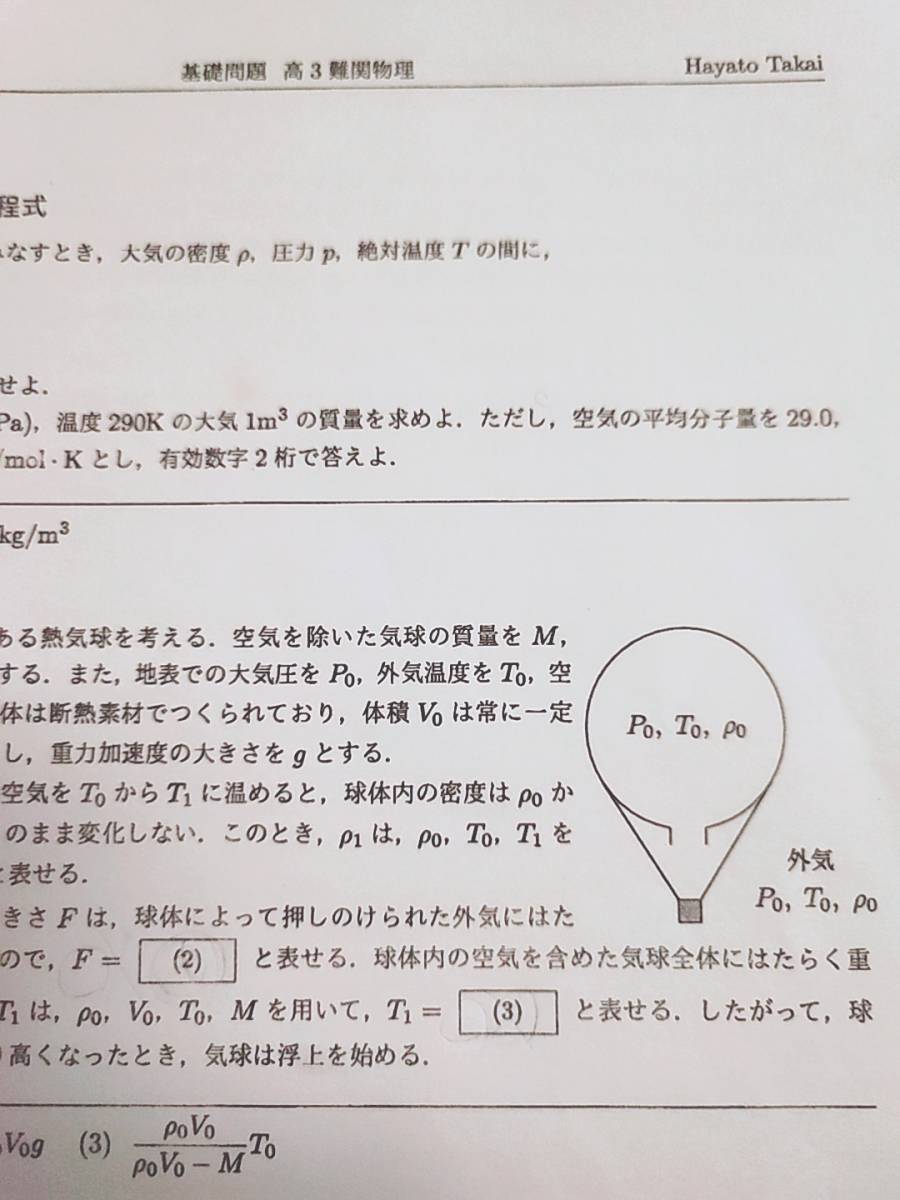 基礎問題 高3難関物理
Hayato Takai
程式
なすとき，大気の密度 ρ，圧力 p，絶対温度 T の間に，
せよ．
Pa)，温度 290K の大気 1m³ の質量を求めよ．ただし，空気の平均分子量を 29.0，
/mol·K とし，有効数字 2 桁で答えよ．
kg/m³
ある熱気球を考える．空気を除いた気球の質量を M，
する．また，地表での大気圧を P₀，外気温度を T₀，空
体は断熱素材でつくられており，体積 V₀ は常に一定
し，重力加速度の大きさを g とする．
空気を T₀ から T₁ に温めると，球体内の密度は ρ₀ か
のまま変化しない．このとき，ρ₁ は，ρ₀，T₀，T₁ を
と表せる．
きさ F は，球体によって押しのけられた外気にはた
ので，F = (2) と表せる．球体内の空気を含めた気球全体にはたらく重
T₁ は，ρ₀，V₀，T₀，M を用いて，T₁ = (3) と表せる．したがって，球
高くなったとき，気球は浮上を始める．
P₀, T₀, ρ₀
外気
P₀, T₀, ρ₀
V₀g (3) ρ₀V₀/(ρ₀V₀ − M) T₀